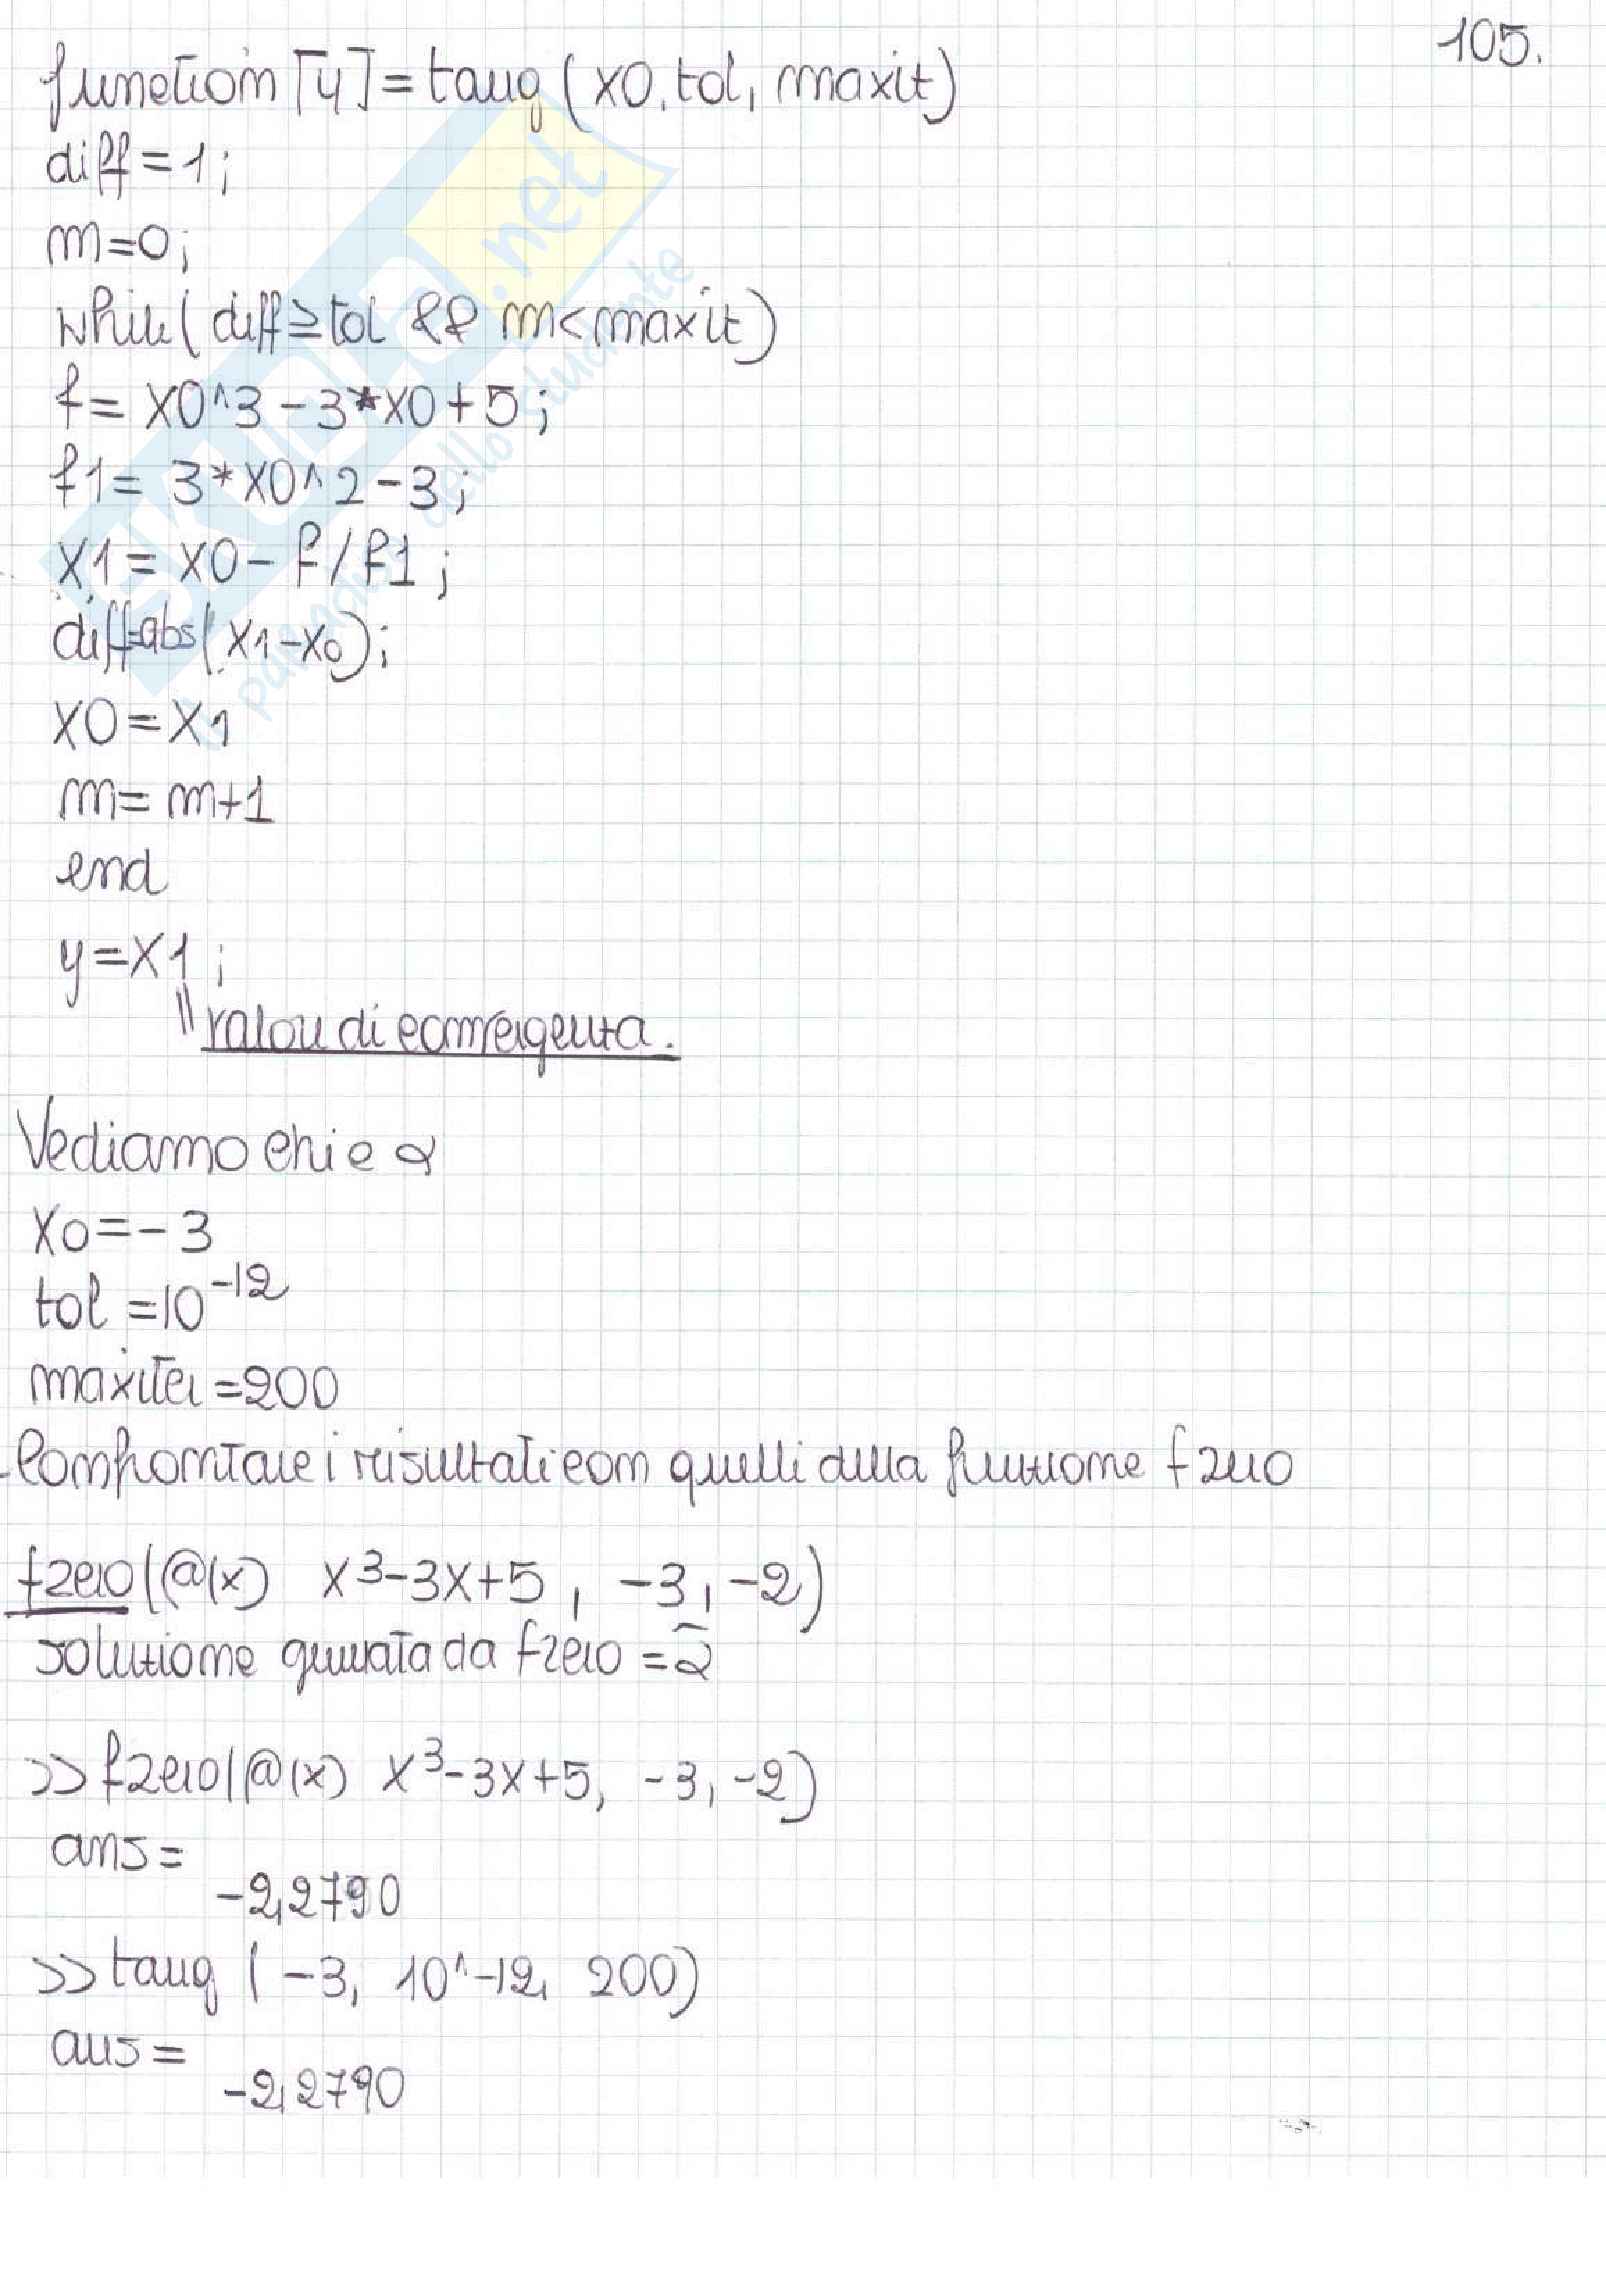 105.
function [y]=tang(x0,tol, maxit)
diff=1;
m=0;
while(diff≥tol && m<maxit)
f= x0^3-3*x0+5;
f1= 3*x0^2-3;
x1= x0-f/f1;
diff=abs(x1-x0);
x0=x1
m=m+1
end
y=x1;
|| valore di convergenza.
Vediamo chi è α
x0=-3
tol=10^-12
maxiter=200
Confrontare i risultati con quelli della funzione fzero
fzero(@(x) x^3-3x+5, -3, -2)
soluzione generata da fzero = α̃
>>fzero(@(x) x^3-3x+5, -3, -2)
ans=
-2,2790
>>tang (-3, 10^-12, 200)
ans=
-2,2790
SKUOLA.net
il paradiso dello studente